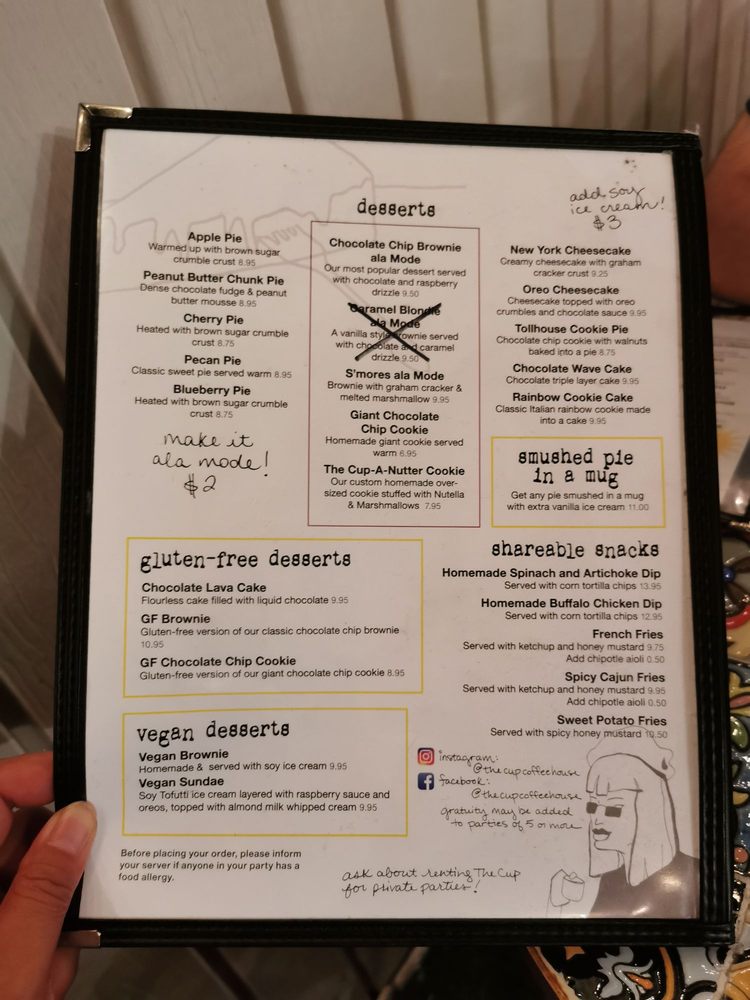 desserts
add soy
ice cream!
$3
Apple Pie
Warmed up with brown sugar
crumble crust 8.95
Peanut Butter Chunk Pie
Dense chocolate fudge & peanut
butter mousse 8.95
Cherry Pie
Heated with brown sugar crumble
crust 8.75
Pecan Pie
Classic sweet pie served warm 8.95
Blueberry Pie
Heated with brown sugar crumble
crust 8.75
make it
ala mode!
$2
Chocolate Chip Brownie
ala Mode
Our most popular dessert served
with chocolate and raspberry
drizzle 9.50
Caramel Blondie
ala Mode
A vanilla style brownie served
with chocolate and caramel
drizzle 9.50
S'mores ala Mode
Brownie with graham cracker &
melted marshmallow 9.95
Giant Chocolate
Chip Cookie
Homemade giant cookie served
warm 6.95
The Cup-A-Nutter Cookie
Our custom homemade over-
sized cookie stuffed with Nutella
& Marshmallows 7.95
New York Cheesecake
Creamy cheesecake with graham
cracker crust 9.25
Oreo Cheesecake
Cheesecake topped with oreo
crumbles and chocolate sauce 9.95
Tollhouse Cookie Pie
Chocolate chip cookie with walnuts
baked into a pie 8.75
Chocolate Wave Cake
Chocolate triple layer cake 9.95
Rainbow Cookie Cake
Classic Italian rainbow cookie made
into a cake 9.95
smushed pie
in a mug
Get any pie smushed in a mug
with extra vanilla ice cream 11.00
gluten-free desserts
Chocolate Lava Cake
Flourless cake filled with liquid chocolate 9.95
GF Brownie
Gluten-free version of our classic chocolate chip brownie
10.95
GF Chocolate Chip Cookie
Gluten-free version of our giant chocolate chip cookie 8.95
shareable snacks
Homemade Spinach and Artichoke Dip
Served with corn tortilla chips 13.95
Homemade Buffalo Chicken Dip
Served with corn tortilla chips 12.95
French Fries
Served with ketchup and honey mustard 9.75
Add chipotle aioli 0.50
Spicy Cajun Fries
Served with ketchup and honey mustard 9.95
Add chipotle aioli 0.50
Sweet Potato Fries
Served with spicy honey mustard 10.50
vegan desserts
Vegan Brownie
Homemade & served with soy ice cream 9.95
Vegan Sundae
Soy Tofutti ice cream layered with raspberry sauce and
oreos, topped with almond milk whipped cream 9.95
instagram:
@thecupcoffeehouse
facebook:
@thecupcoffeehouse
gratuity may be added
to parties of 5 or more
Before placing your order, please inform
your server if anyone in your party has a
food allergy.
ask about renting The Cup
for private parties!